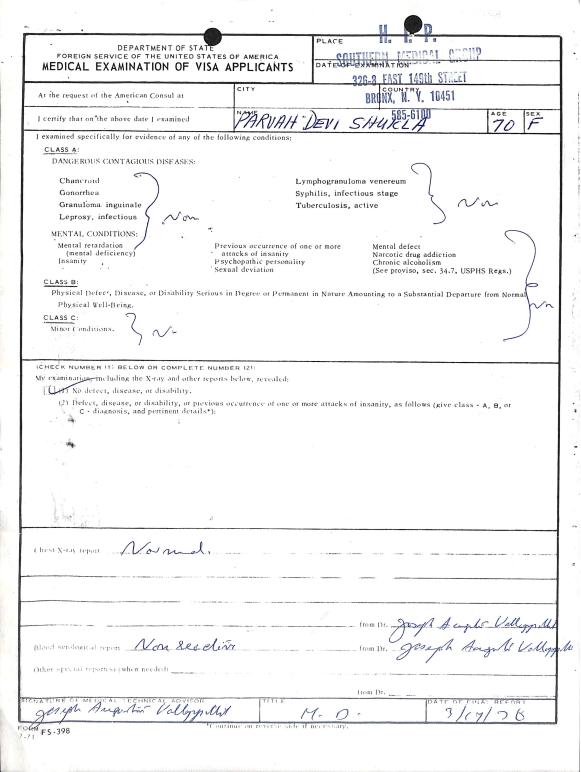 H. I. P.
DEPARTMENT OF STATE
FOREIGN SERVICE OF THE UNITED STATES OF AMERICA
MEDICAL EXAMINATION OF VISA APPLICANTS
PLACE
SOUTHERN MEDICAL GROUP
DATE OF EXAMINATION
326-8 EAST 149th STREET
At the request of the American Consul at
CITY
COUNTRY
BRONX, N. Y. 10451
585-6100
I certify that on the above date I examined
NAME
PARVAH DEVI SHUKLA
AGE
70
SEX
F
I examined specifically for evidence of any of the following conditions:
CLASS A:
DANGEROUS CONTAGIOUS DISEASES:
Chancroid
Gonorrhea
Granuloma inguinale
Leprosy, infectious
Non
Lymphogranuloma venereum
Syphilis, infectious stage
Tuberculosis, active
Non
MENTAL CONDITIONS:
Mental retardation
(mental deficiency)
Insanity
Previous occurrence of one or more
attacks of insanity
Psychopathic personality
Sexual deviation
Mental defect
Narcotic drug addiction
Chronic alcoholism
(See proviso, sec. 34.7, USPHS Regs.)
CLASS B:
Physical Defect, Disease, or Disability Serious in Degree or Permanent in Nature Amounting to a Substantial Departure from Normal
Physical Well-Being.
CLASS C:
Minor Conditions.
(CHECK NUMBER (1) BELOW OR COMPLETE NUMBER (2))
My examination, including the X-ray and other reports below, revealed:
(1) No defect, disease, or disability.
(2) Defect, disease, or disability, or previous occurrence of one or more attacks of insanity, as follows (give class - A, B, or
C - diagnosis, and pertinent details*):
Chest X-ray report
Normal.
from Dr. Joseph Augustin Valloppillil
Blood serological report
Non reactive
from Dr. Joseph Augustin Valloppillil
Other special report(s) (when needed)
from Dr.
SIGNATURE OF MEDICAL TECHNICAL ADVISOR
Joseph Augustin Valloppillil
TITLE
M. D.
DATE OF FINAL REPORT
3/17/78
FORM FS-398
7-71
*Continue on reverse side if necessary.